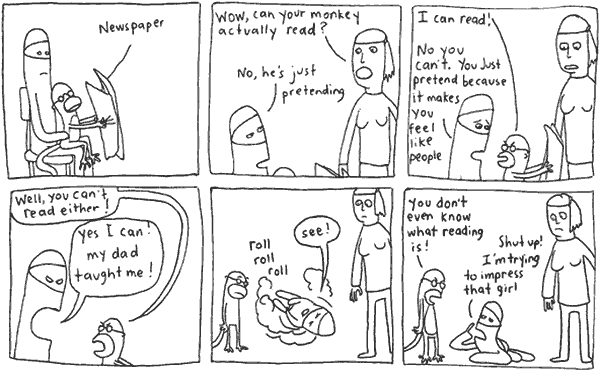 Newspaper
Wow, can your monkey
actually read?
No, he's just
pretending
I can read!
No you
can't. You Just
pretend because
it makes
you
feel
like
people
Well, you can't
read either!
yes I can!
my dad
taught me!
roll
roll
roll
see!
you don't
even know
what reading
is!
Shut up!
I'm trying
to impress
that girl